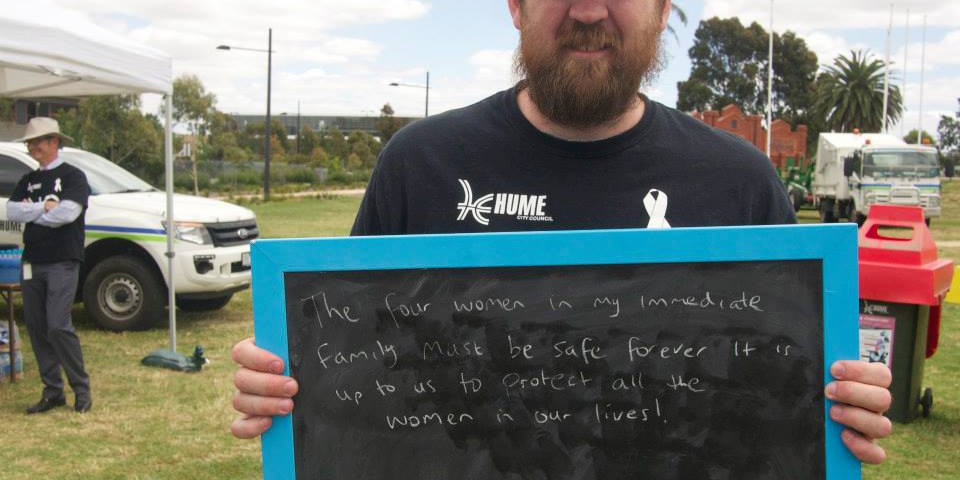 HUME
CITY COUNCIL
The four women in my immediate
family must be safe forever It is
up to us to protect all the
women in our lives!
HUME